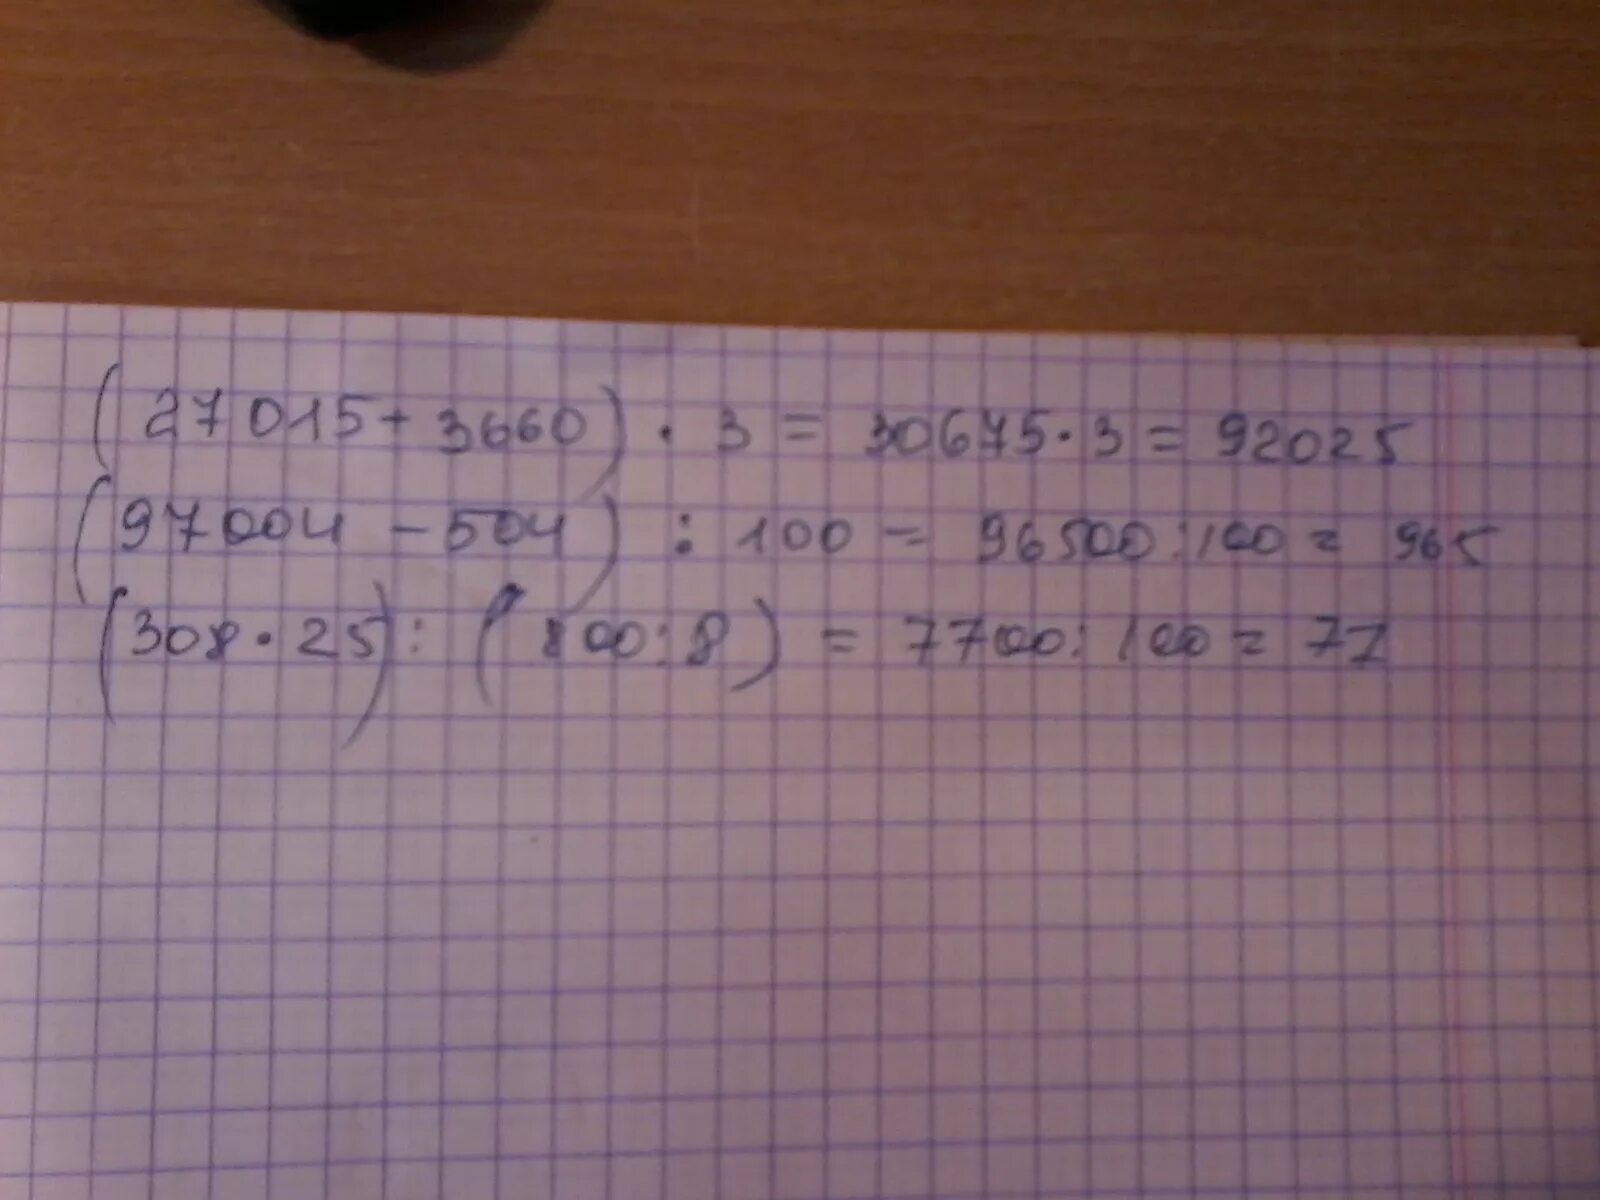 (27015+3660)·3=30675·3=92025
(97004-504):100=96500:100=965
(308·25):(800:8)=7700:100=77